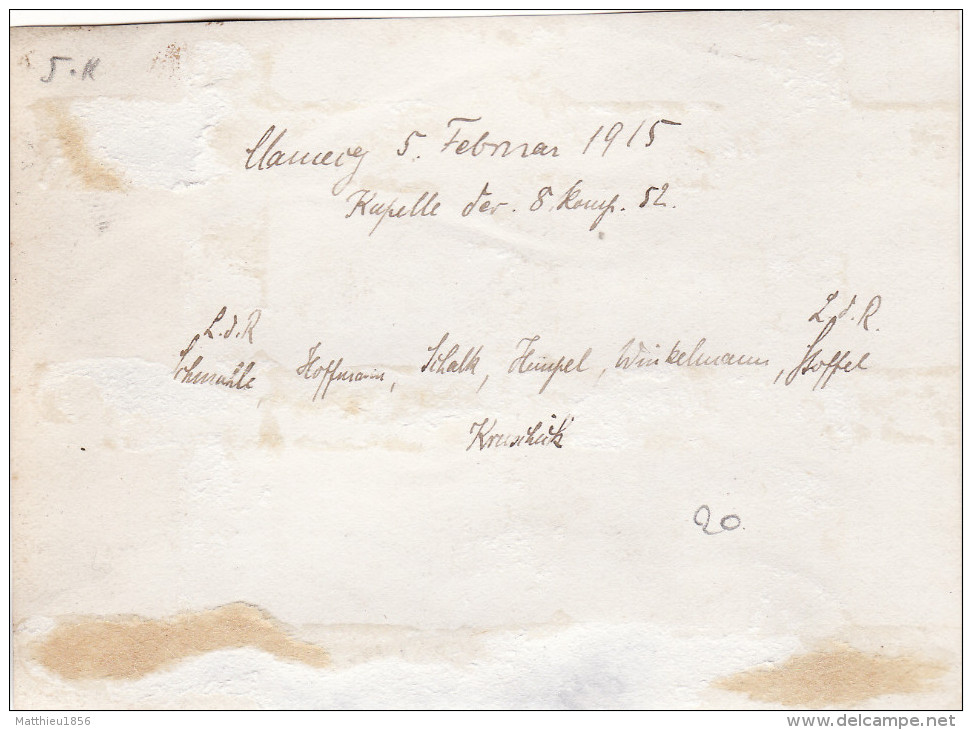 5.K
Clamecy 5. Februar 1915
Kapelle der. 8. Komp. 52.
L.d.R L.d.R.
Schmähle, Hoffmann, Schalk, Hümpel, Winkelmann, Stoffel
Kruschick
20
Matthieu1856
delcampe.net